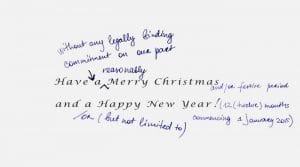 without any legally binding
commitment on our part
reasonably
Have a Merry Christmas
and/or festive period
and a Happy New Year! (12 (twelve) months
or (but not limited to) commencing 1 January 2015)